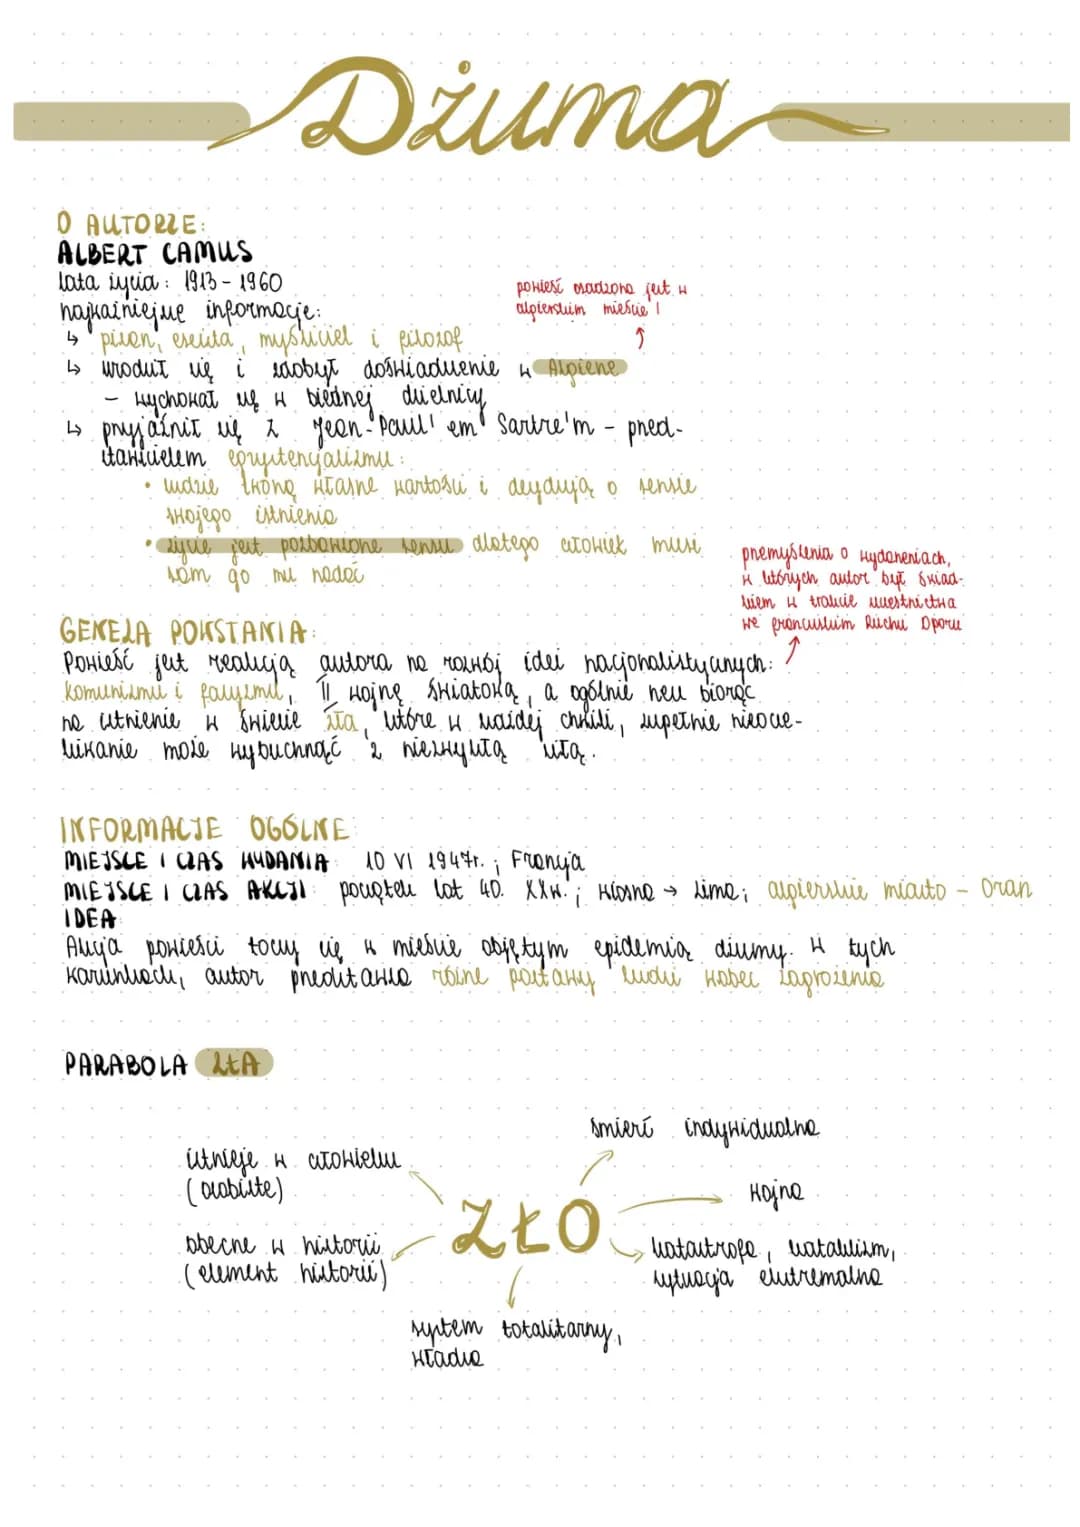 Dżuma
O AUTORZE:
ALBERT CAMUS
lata życia: 1913 - 1960
najważniejsze informacje:
powieść osadzona jest w
algierskim mieście!
↳ pisarz, eseista, myśliciel i filozof
↳ urodził się i zdobył doświadczenie w Algierze
- wychował się w biednej dzielnicy
↳ przyjaźnił się z Jean-Paul'em Sartre'm - przed-
stawicielem egzystencjalizmu:
• ludzie tworzą własne wartości i decydują o sensie
swojego istnienia
• życie jest pozbawione sensu dlatego człowiek musi
sam go mu nadać
przemyślenia o wydarzeniach,
w których autor był świad-
kiem w trakcie uczestnictwa
we francuskim Ruchu Oporu
GENEZA POWSTANIA:
Powieść jest reakcją autora na rozwój idei nacjonalistycznych:
komunizmu i faszyzmu, II wojnę światową, a ogólnie rzecz biorąc
na istnienie w świecie zła, które w każdej chwili, zupełnie nieocze-
kiwanie może wybuchnąć z niezwykłą siłą.
INFORMACJE OGÓLNE
MIEJSCE I CZAS WYDANIA: 10 VI 1947r.; Francja
MIEJSCE I CZAS AKCJI: początek lat 40. XXw.; wiosna → zima; algierskie miasto - Oran
IDEA
Akcja powieści toczy się w mieście objętym epidemią dżumy. W tych
warunkach, autor przedstawia różne postawy ludzi wobec zagrożenia
PARABOLA ZŁA
śmierć indywidualna
istnieje w człowieku
(osobiste)
wojna
ZŁO
obecne w historii
(element historii)
katastrofa, kataklizm,
sytuacja ekstremalna
system totalitarny,
władza